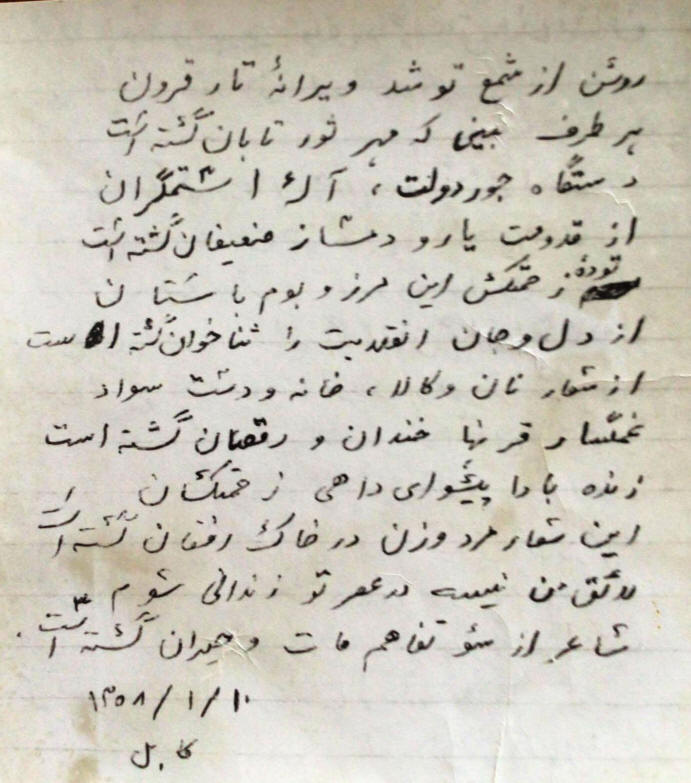 روشن از شمع تو شد ویرانهٔ تار قرون
هر طرف بینی که مهر نور تابان گشته است
دستگاه جور دولت، آلهٔ استمگران
از قدومت یار و دمساز ضعیفان گشته است
تودهٔ زحمتکش این مرز و بوم باستان
از دل و جان انقلابت را ثناخوان گشته است
از شعار نان و کالا، خانه و دشت سواد
غمگسار قرنها خندان و رقصان گشته است
زنده بادا پیشوای داهی زحمتکشان
این شعار مرد و زن در خاک افغان گشته است
لائق من نیست در عصر تو زندانی شوم
شاعر از سؤ تفاهم مات و حیران گشته است
۱۳۵۸/۱/۱۰
کابل